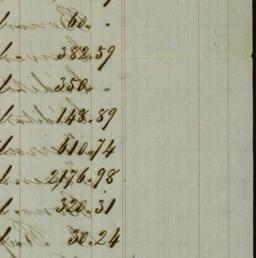 60. "
382.59
350. "
148.89
610.74
2176.98
320.31
30.24